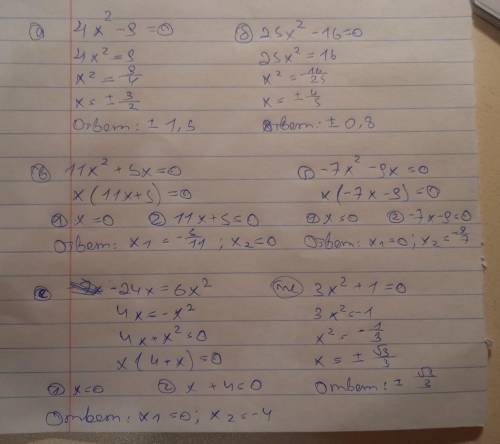 а) 4x² - 9 = 0
4x² = 9
x² = 9/4
x = ± 3/2
Ответ: ± 1,5
б) 25x² - 16 = 0
25x² = 16
x² = 16/25
x = ± 4/5
Ответ: ± 0,8
в) 11x² + 5x = 0
x(11x + 5) = 0
1) x = 0 2) 11x + 5 = 0
Ответ: x1 = -5/11 ; x2 = 0
г) -7x² - 9x = 0
x(-7x - 9) = 0
1) x = 0 2) -7x - 9 = 0
Ответ: x1 = 0; x2 = -9/7
е) -24x = 6x²
4x = -x²
4x + x² = 0
x(4 + x) = 0
1) x = 0 2) x + 4 = 0
Ответ: x1 = 0; x2 = -4
ж) 3x² + 1 = 0
3x² = -1
x² = -1/3
x = ± √3/3
Ответ: ± √3/3